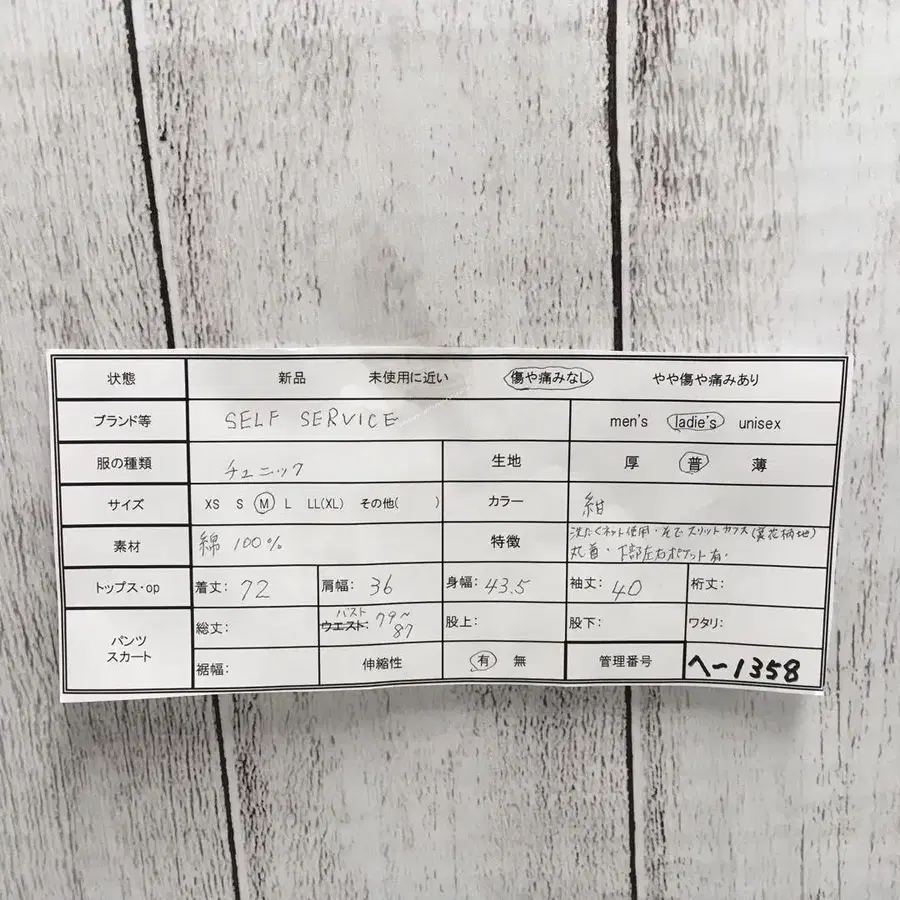 状態 新品 未使用に近い 傷や痛みなし やや傷や痛みあり
ブランド等 SELF SERVICE men's ladie's unisex
服の種類 チュニック 生地 厚 普 薄
サイズ XS S M L LL(XL) その他( ) カラー 紺
素材 綿 100% 特徴 洗たくネット使用・そでスリットカフス(裏花柄地)
丸首・下部左右ポケット有・
トップス・op 着丈: 72 肩幅: 36 身幅: 43.5 袖丈: 40 裄丈:
パンツ スカート 総丈: バスト ウエスト: 79~87 股上: 股下: ワタリ:
裾幅: 伸縮性 有 無 管理番号 へー1358